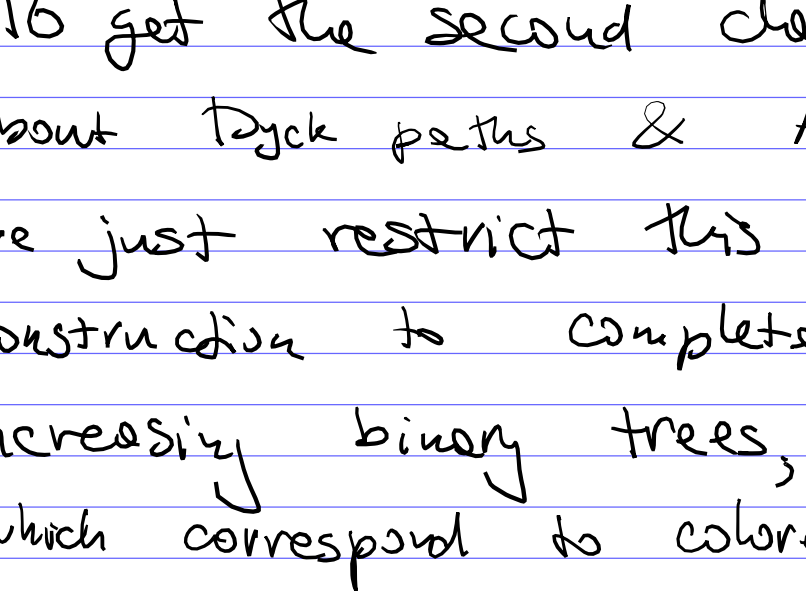 To get the second cla
bout Dyck paths &
e just restrict this
onstruction to complete
ncreasing binary trees,
which correspond to color